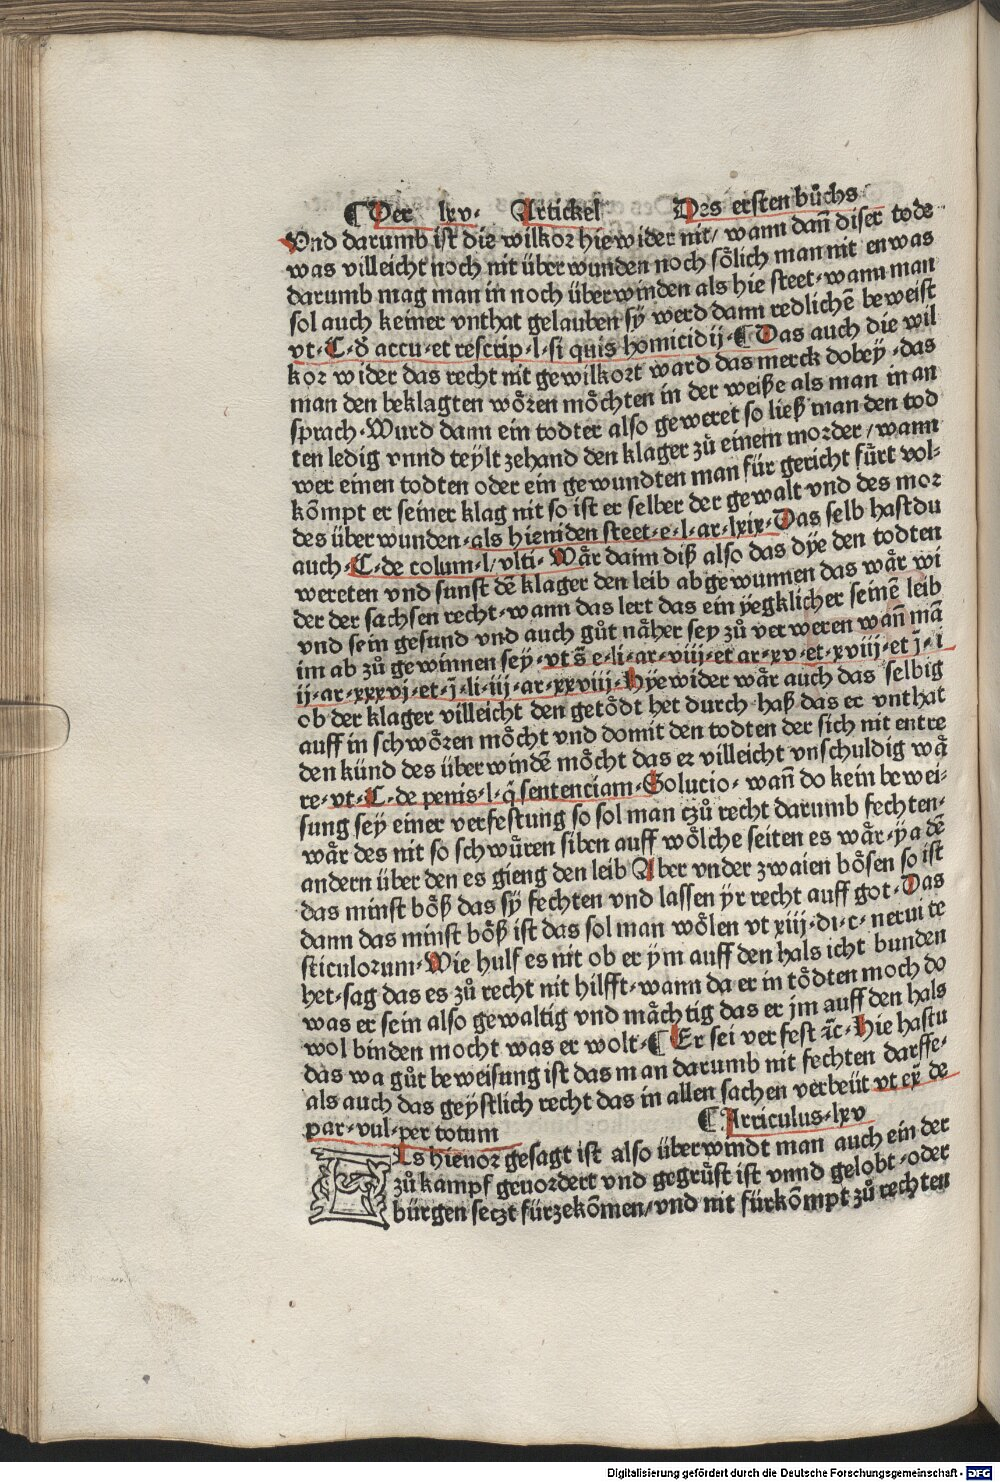 ¶ Der lxv· Artickel Des ersten bůchs
Vnd darumb ist die wilkor hie wider nit/ wann dañ diser tode
was villeicht noch nit überwunden noch sölich man nit en was
darumb mag man in noch überwinden als hie steet·wann man
sol auch keiner vnthat gelauben sÿ werd dann redlichē beweist
vt·C·đ accu·et rescrip·l·si quis homicidij·¶ Das auch die wil
kor wider das recht nit gewilkort ward das merck dobey·das
man den beklagten wören möchten in der weiße als man in an
sprach·Wurd dann ein todter also geweret so ließ man den tod
ten ledig vnnd teylt zehand den klager zů einem morder/wann
wer einen todten oder ein gewundten man für gericht fürt vol-
kōmpt er seiner klag nit so ist er selber der gewalt vnd des mor
des überwunden·als hieniden steet·e·l·ar·lxix·Das selb hast du
auch·C·de colum·l/vlti·Wår dann diß also das dÿe den todten
wereten vnd sunst dē klager den leib abgewunnen das wår wi
der der sachsen recht·wann das lert das ein ÿegklicher seinē leib
vnd sein gesund vnd auch gůt nåher sey zů verweren wañ mā
im ab zů gewinnen sey·vt s̄ e·li·ar·viij·et ar·xv·et·xviij·et j̄·i
ij·ar·xxxvj·et·j̄·li·iij·ar·xxviij·Hÿe wider wår auch das selbig
ob der klager villeicht den getödt het durch haß das er vnthat
auff in schwören möcht vnd domit den todten der sich nit entre
den künd des überwindē möcht das er villeicht vnschuldig wå
re·vt·C·de penis·l·q̄ sentenciam·Solucio·wañ do kein bewei-
sung sey einer verfestung so sol man czů recht darumb fechten·
wår des nit so schwüren siben auff wölche seiten es wår·ÿa dē
andern über den es gieng den leib Aber vnder zwaien bösen so ist
das minst böß das sÿ fechten vnd lassen ÿr recht auff got·Das
dann das minst böß ist das sol man wölen vt xiij·di·c·nerui te
sticulorum·Wie hulf es nit ob er ÿm auff den hals icht bunden
het·sag das es zů recht nit hilfft·wann da er in tödten moch do
was er sein also gewaltig vnd måchtig das er jm auff den hals
wol binden mocht was er wolt·¶ Er sei verfest ꝛc·Hie hastu
das wa gůt beweisung ist das man darumb nit fechten darffe·
als auch das geÿstlich recht das in allen sachen verbeüt vt ex̄ de
par·vul·per totum ¶ Articulus·lxv
Als hieuor gesagt ist also überwindt man auch ein der
zů kampf geuordert vnd gegrüst ist vnnd gelobt·oder
bürgen seczt fürzekōmen/vnd nit fürkōmpt zů rechten
Digitalisierung gefördert durch die Deutsche Forschungsgemeinschaft - DFG